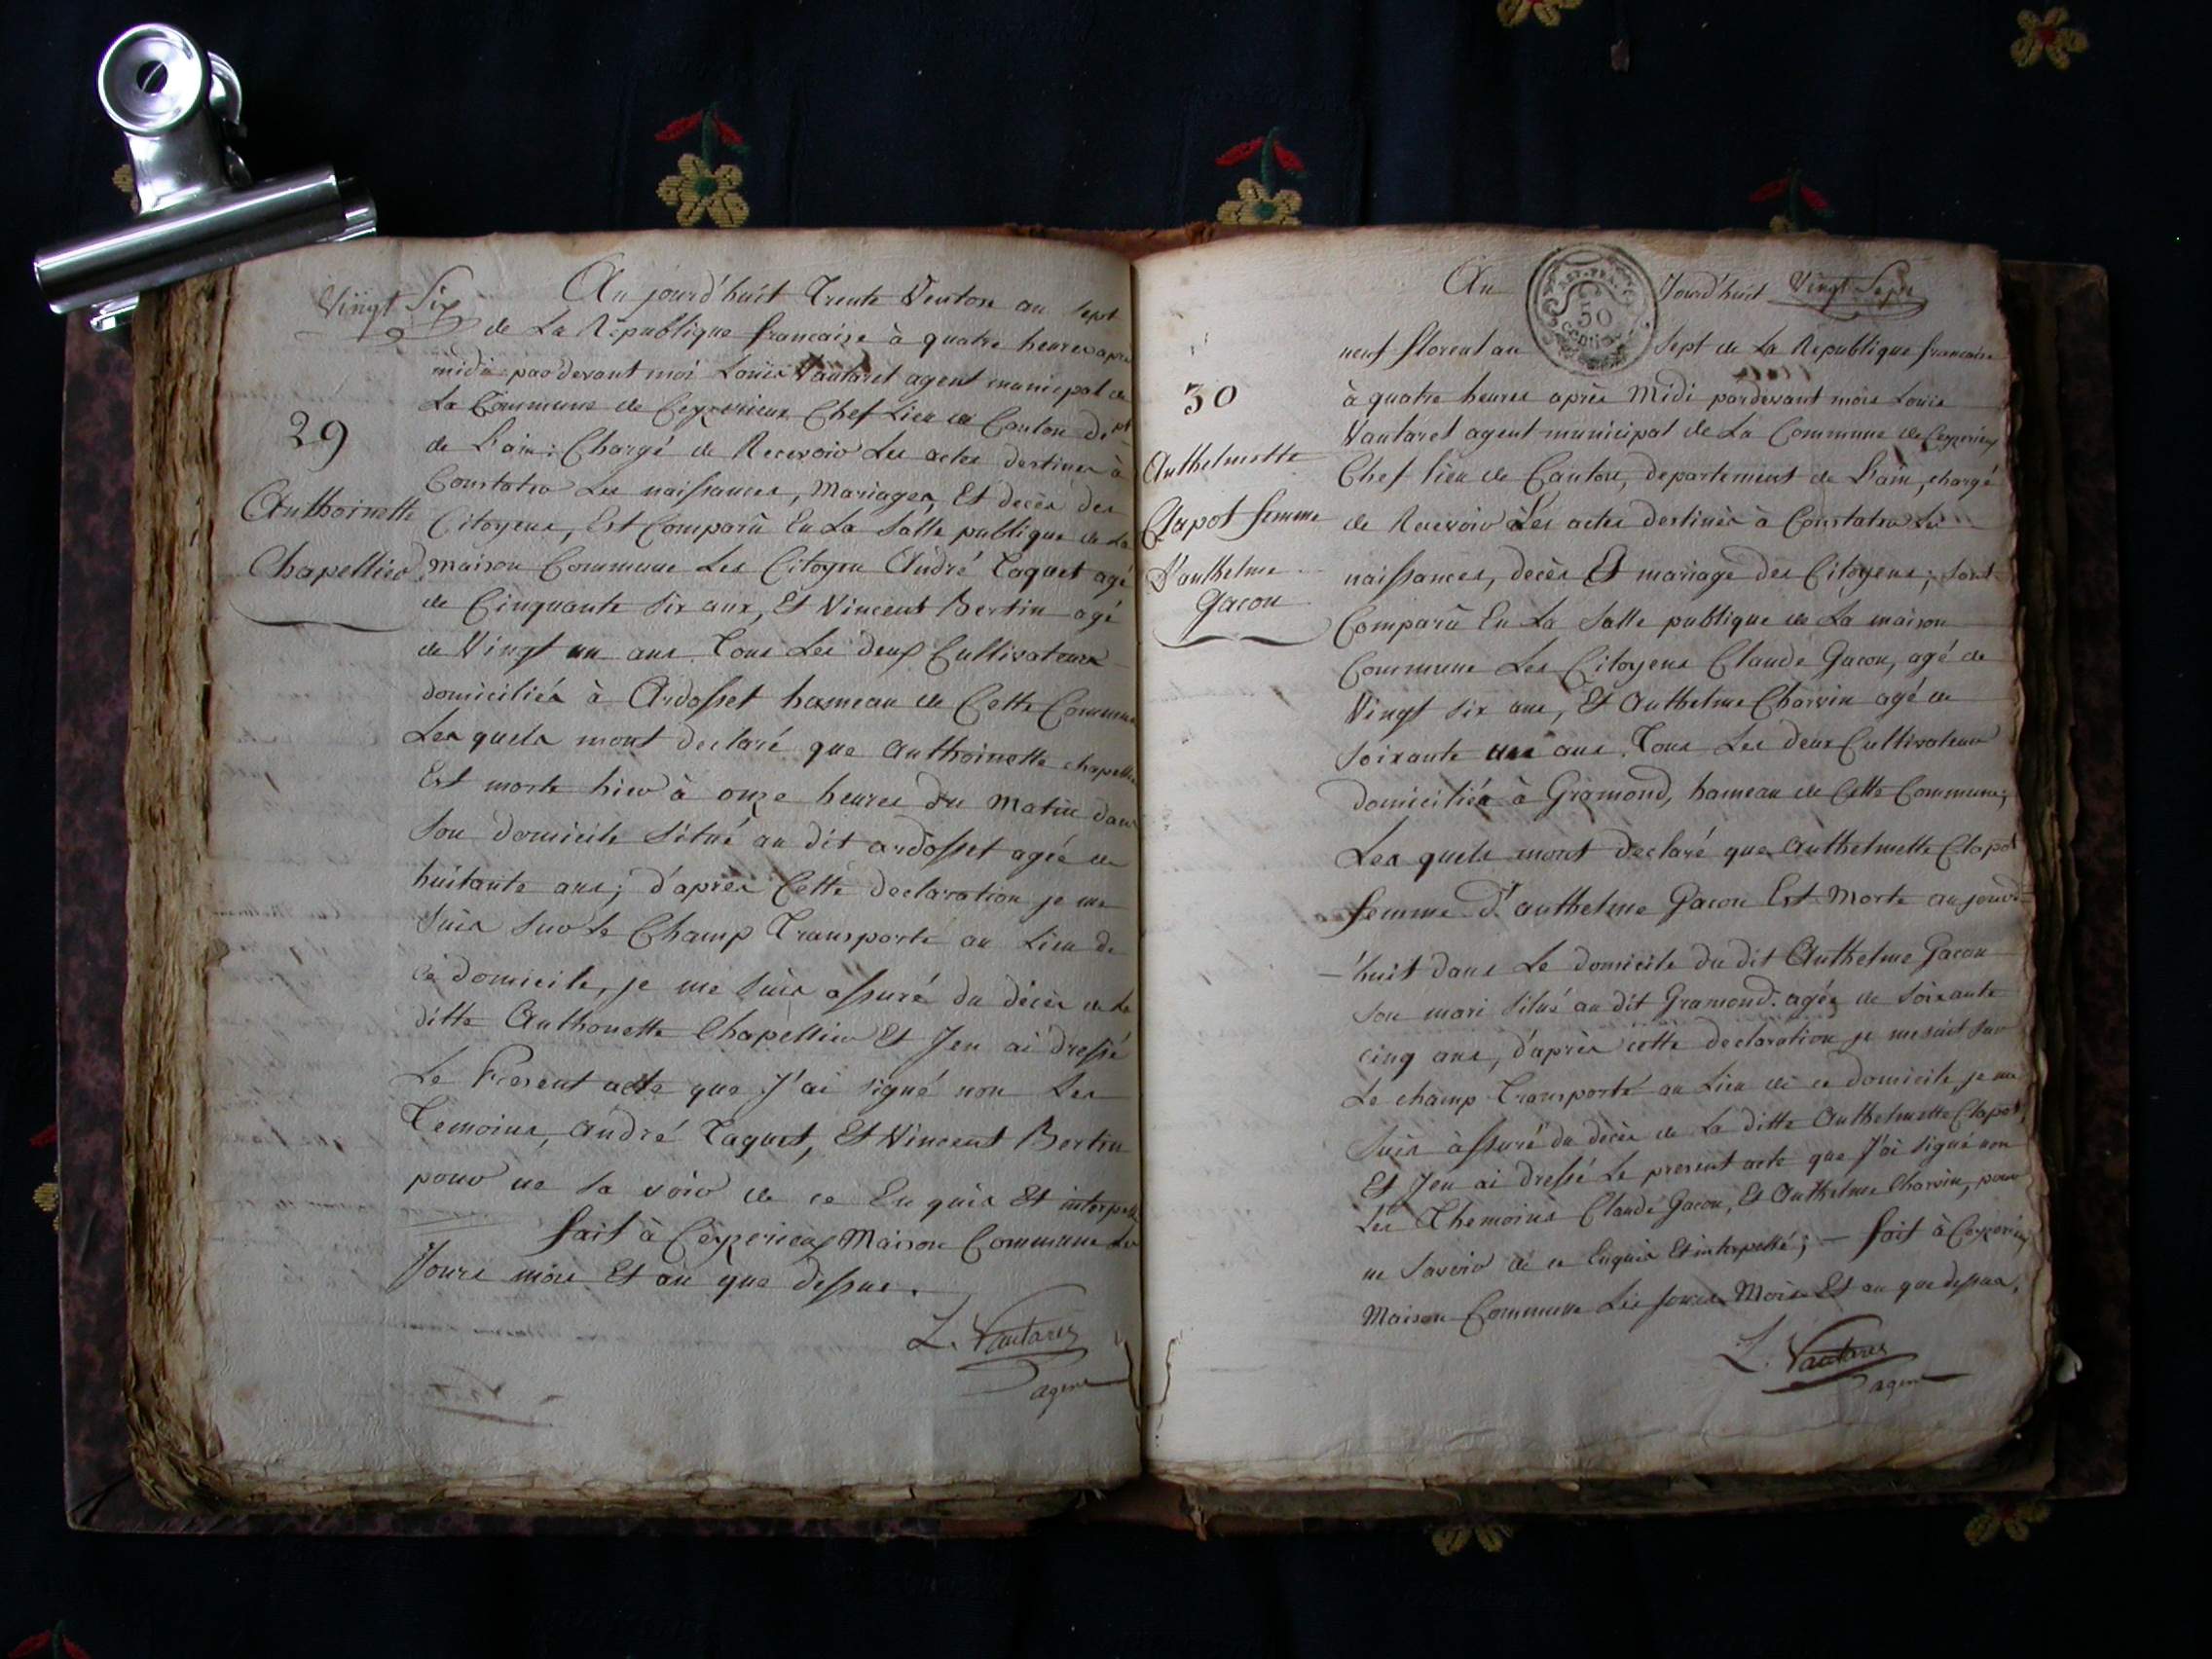 Vingt Six
Au jourd'huit Trente Ventose an sept
de La Republique francaise à quatre heures apre
midi pardevant moi Louis Vautaret agent municipal de
La Commune de Ceyzerieux Chef Lieu de Canton Dept
de L'ain; Chargé de Recevoir Les actes destines à
Constater Les naissances, Mariages, Et decès des
Citoyens, Est Comparu En La Salle publique de La
maison Commune Les Citoyen André Taquet agé
de Cinquante six ans, Et Vincent Bertin agé
de Vingt un ans Tous Les deux Cultivateurs
domiciliés à Ardosset hameau de Cette Commune
Les quels mont declaré que Anthoinette chapellier
Est morte hier à onze heures du Matin dans
son domicile situé au dit ardosset agée de
huitante ans; d'apres Cette declaration je me
suis sur le Champ Transporté au Lieu de
ce domicile, je me suis assuré du décès de La
ditte Anthonette Chapellier Et J'en ai dressé
Le Present acte que J'ai signé non Les
Temoins, André Taquet, Et Vincent Bertin
pour ne sa voir de ce En quis Et interpellé
fait à Ceyzerieux Maison Commune Les
Jours mois Et an que dessus.
L. Vautaret
agent
29
Anthoinette
Chapellier
Au Jourd'huit Vingt Sept
50
centimes
neuf floreal an sept de La Republique francaise
à quatre heures après Midi pardevant mois Louis
Vautaret agent municipal de La Commune de Ceyzerieux
Chef lieu de Canton, departement de L'ain, chargé
de Recevoir Les actes destinés à Constater Les
naissances, decès Et mariage des Citoyens; sont
Comparu En La Salle publique de La maison
Commune Les Citoyens Claude Gacon, agé de
Vingt six ans, Et Anthelme Charvin agé de
soixante ans Tous Les deux Cultivateur
domiciliés à Gramond, hameau de Cette Commune;
Les quels mont declaré que Anthelmette Clapot
femme d'anthelme Gacon Est Morte au jourd-
-'huit dans Le domicile du dit Anthelme Gacon
son mari situé au dit Gramond. agée de soixante
cinq ans, d'après cette declaration je me suit sur
Le champ Transporté au Lieu de ce domicile je me
suis àssuré du decès de La ditte Anthelmette Clapot,
Et J'en ai dressé Le present acte que J'ai signé non
Les Themoins Claude Gacon, Et Anthelme Charvin, pour
ne savoir de ce Enquis Et interpellé; - fait à Ceyzerieux
Maison Commune Les jours Mois Et an que dessus,
L. Vautaret
agent
30
Anthelmette
Clapot femme
D'anthelme
Gacon